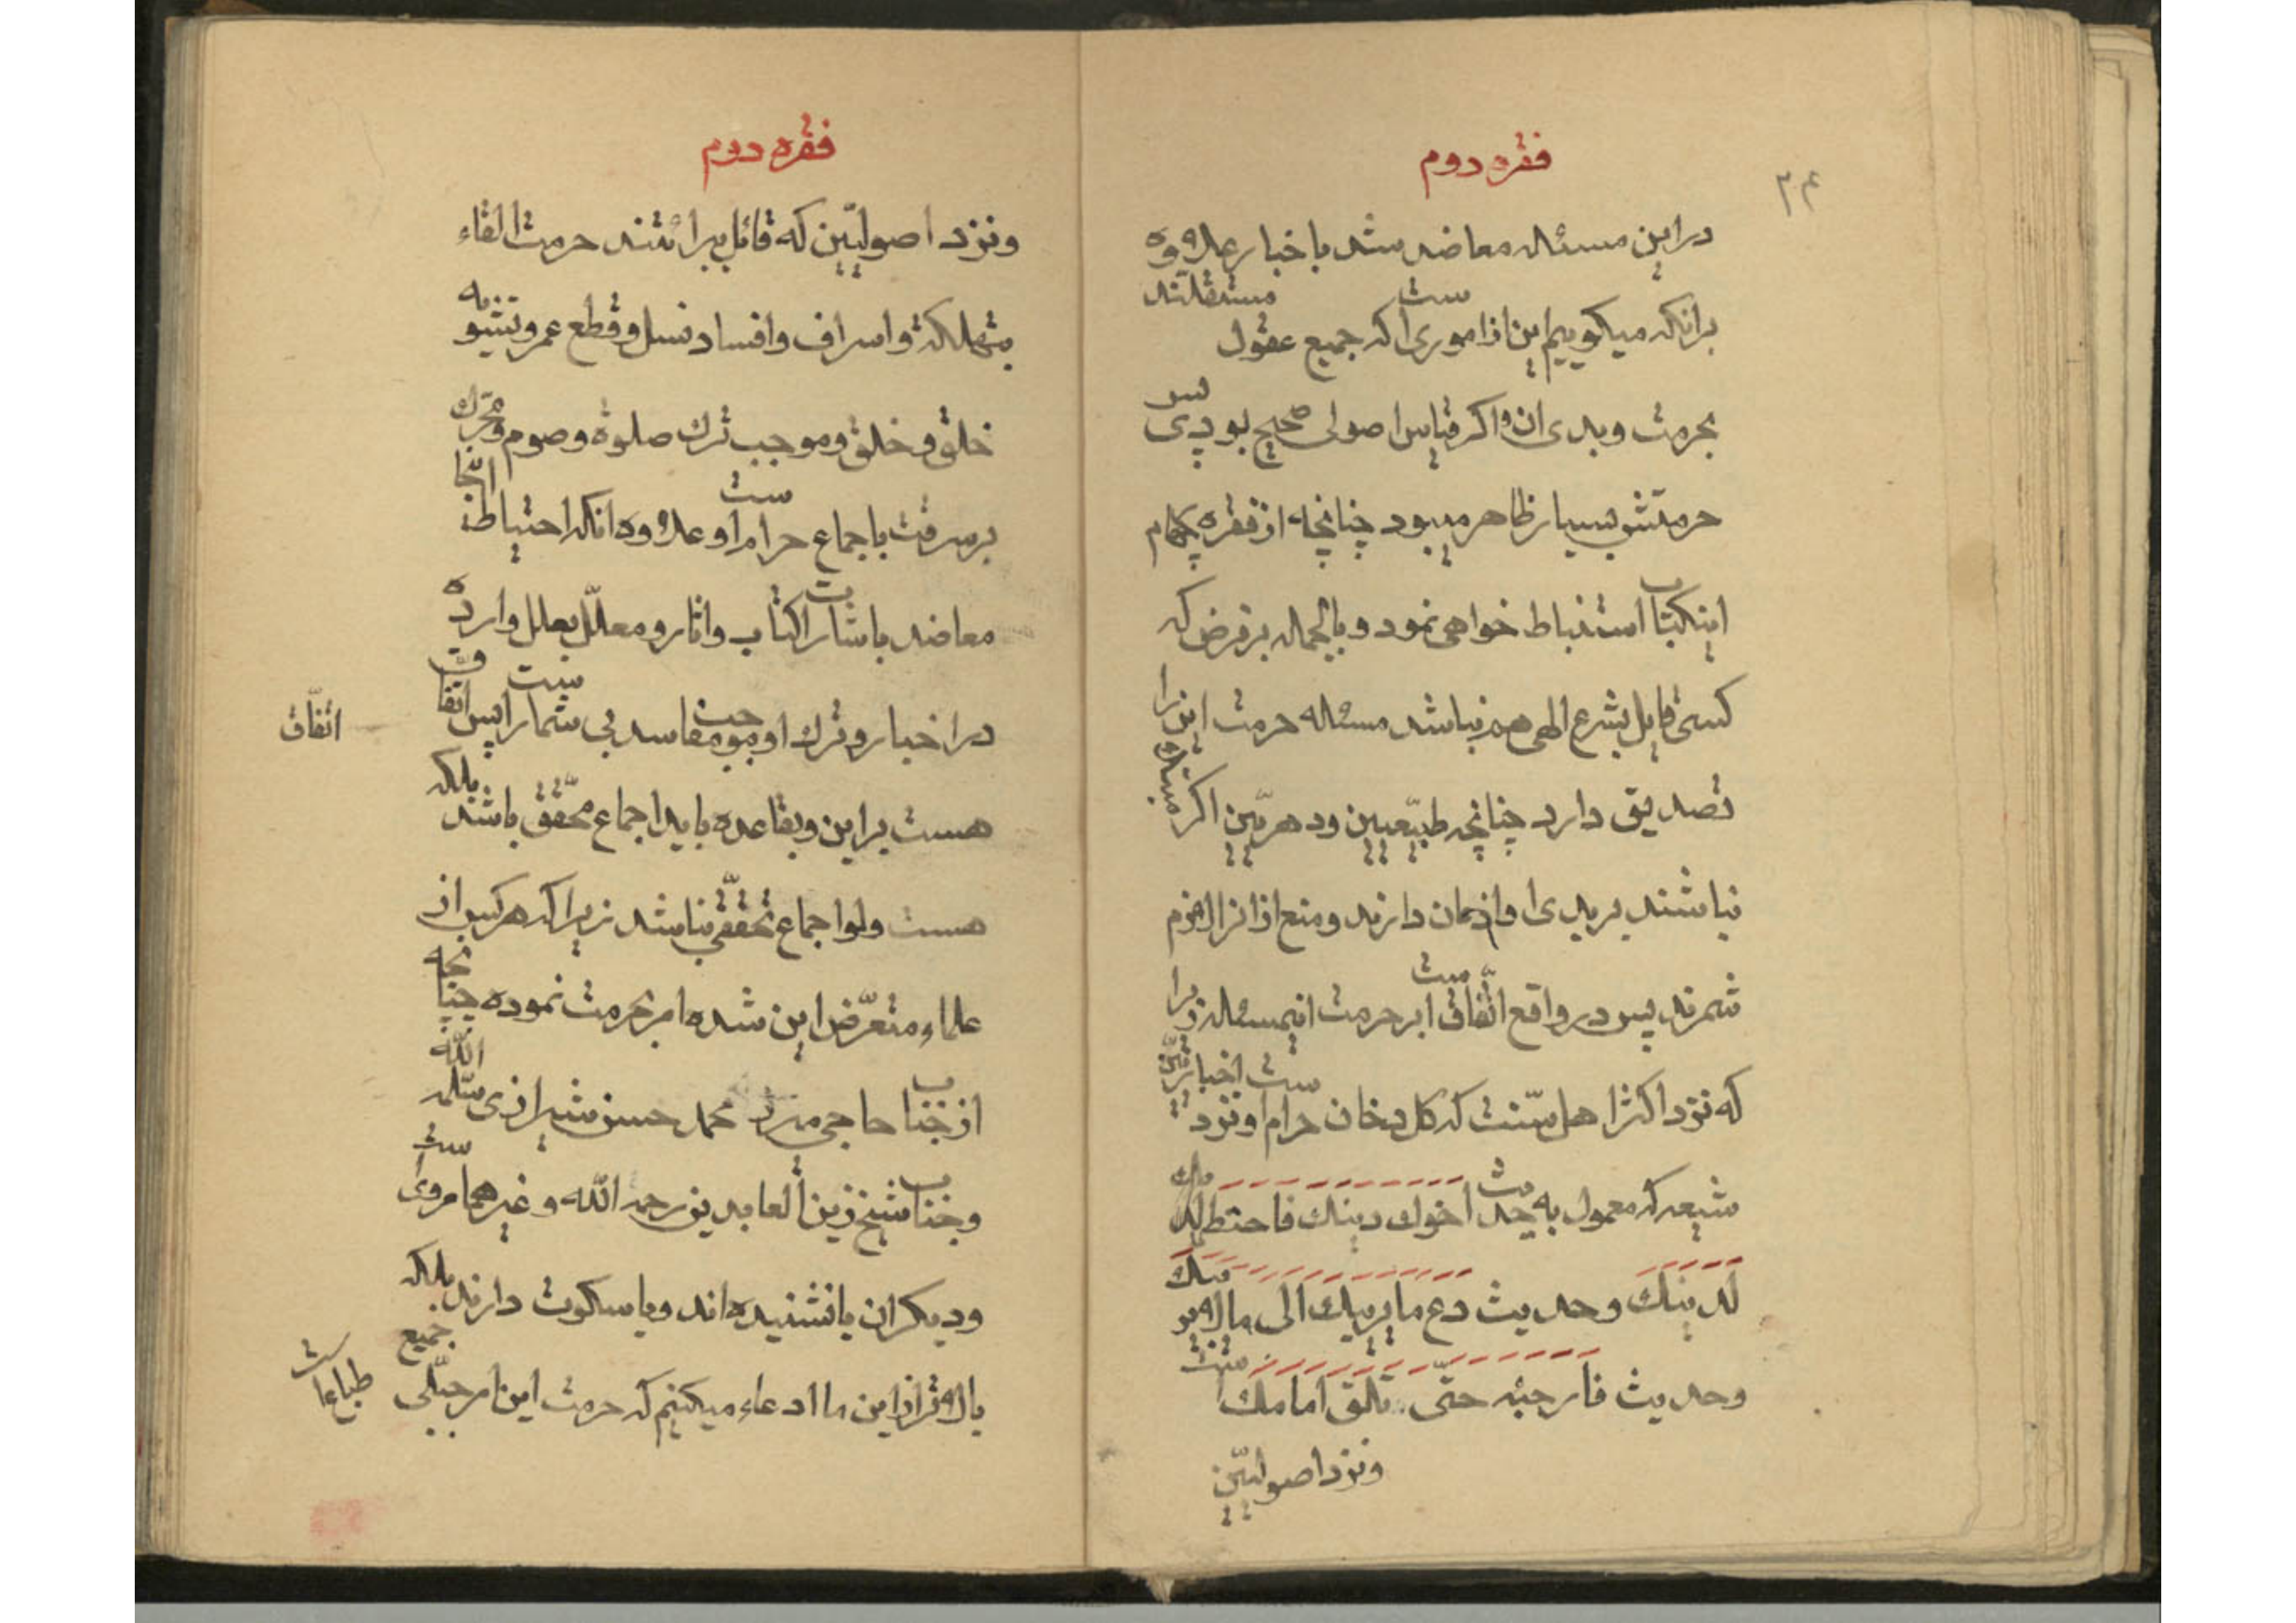 ۲۴
فقره دوم
در این مسئله معاضد شد باخبار علاوه
برانکه میکوییم این از اموری است که جمیع عقول مستقلّند
بحرمت و بدی ان و اکر قیاس اصولی صحیح بود پس پی
حرمتش بسیار ظاهر میبود چنانچه از فقره چهارم
اینکتاب استنباط خواهی نمود و بالجمله برفرض که
کسی قایل بشرع الهی هم نباشد مسئله حرمت این را
تصدیق دارد چنانچه طبیعیین و دهریین اکر مبتلا
نباشند بر بدی او اذعان دارند و منع او را لازم
شمرند پس در واقع اتّفاق است بر حرمت اینمسئله زیرا
که نزد اکثر اهل سنّت که کل دخان حرام است و نزد اخبارییّن
شیعه که معمول به حدیث اخوك دینك فاحتط
لدینك وحدیث دع ما یریبك الی ما لا یریبك
وحدیث فارجئه حتّی تلقی امامك است
ونزد اصولییّن
فقره دوم
ونزد اصولییّن که قائل ببرائتند حرمت القاء
بتهلکة و اسراف و افساد نسل و قطع عمر و تشویه
خلق و خلق و موجب ترك صلوة و صوم و محرّك
بر سرقت باجماع حرام است و علاوه انکه احتیاط اینجا
معاضد باشارات کتاب و اثار و معلّل بعلل وارده
در اخبار و ترك او موجب مفاسد بی شمار است پس اتفاق
اتّفاق
هست بر این و بقاعده باید اجماع محقّق باشد بلکه
هست ولو اجماع تحقّقی نباشد زیرا که هر کس از
علماء متعرّض این شده امر بحرمت نموده چنانچه
از جناب حاجی میرزا محمد حسن شیرازی سلّمه اللّه
وجناب شیخ زین العابدین رحمه اللّه و غیرهما مروی است
ودیکران یا نشنیده اند ویا سکوت دارند بلکه
بالاتر از این ما ادعاء میکنیم که حرمت این امر جبلّی جمیع
طباعات